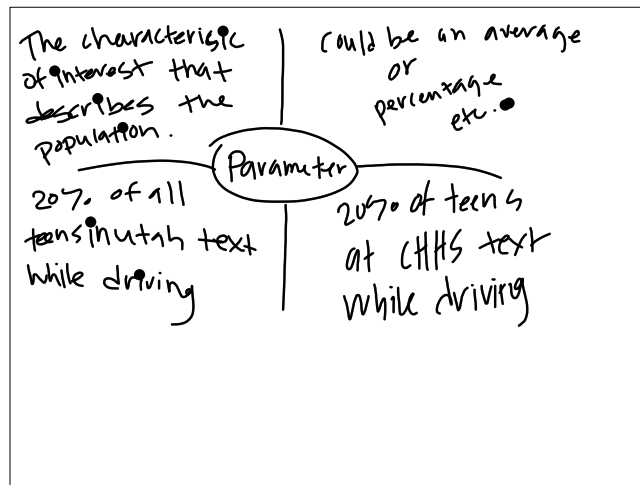 The characterisic
of interest that
describes the
population.
could be an average
or
percentage
etc.
Parameter
20% of all
teens in utah text
while driving
20% of teens
at CHHS text
while driving